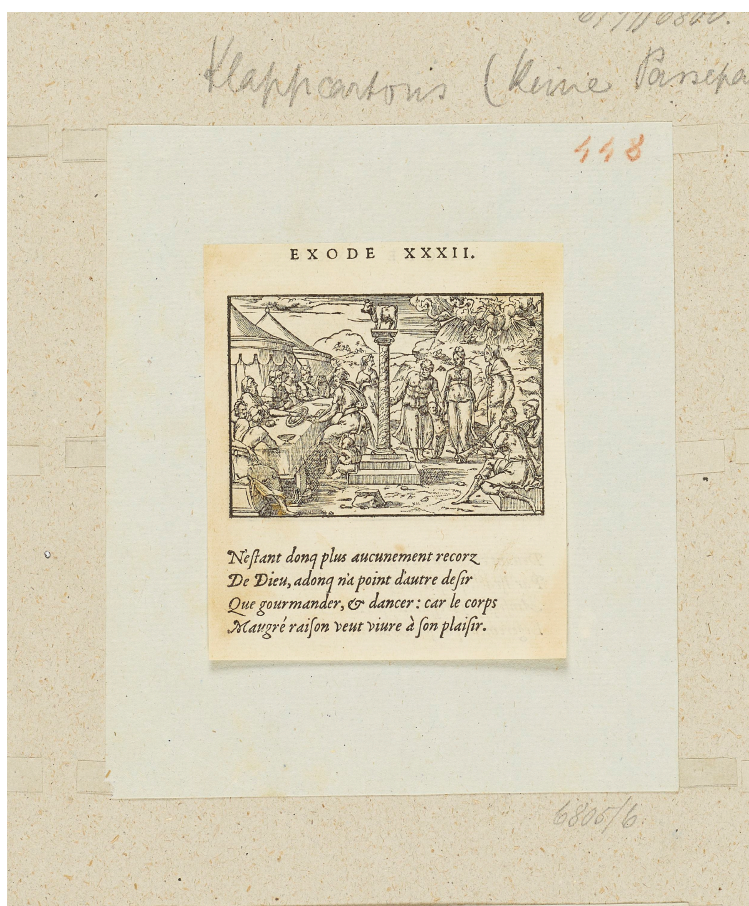 Klappcartons (keine
448
EXODE XXXII.
N'eſtant donq plus aucunement recorz
De Dieu, adonq n'a point d'autre deſir
Que gourmander, & dancer: car le corps
Maugré raiſon veut viure à ſon plaiſir.
6805/6